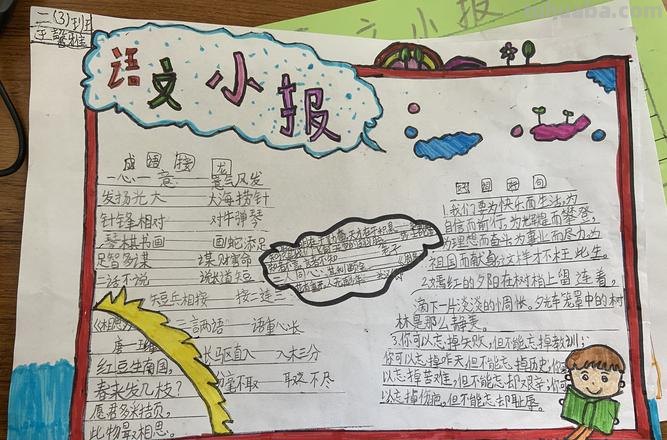 二(3)班
语文小报
成语接龙
一心一意 意气风发
发扬光大 大海捞针
针锋相对 对牛弹琴
琴棋书画 画蛇添足
足智多谋 谋财害命
二话不说 说长道短
短兵相接 接二连三
三言两语 语重心长
长驱直入 入木三分
分毫不取 取之不尽
《相思》
唐 王维
红豆生南国,
春来发几枝?
愿君多采撷,
此物最相思。
好词好句
1.我们要为快乐而生活,为
自信而前行,为光辉而攀登,
为理想而奋斗,为事业而尽力,为
祖国而献身,这样才不枉此生。
2.嫣红的夕阳在树梢上留连着,
滴下一片淡淡的惆怅。夕光笼罩中的树
林是那么静美。
3.你可以忘掉失败,但不能忘掉教训;
你可以忘掉昨天,但不能忘掉历史;你
以忘掉苦难,但不能忘却艰辛;你
以忘掉伤疤,但不能忘却耻辱。